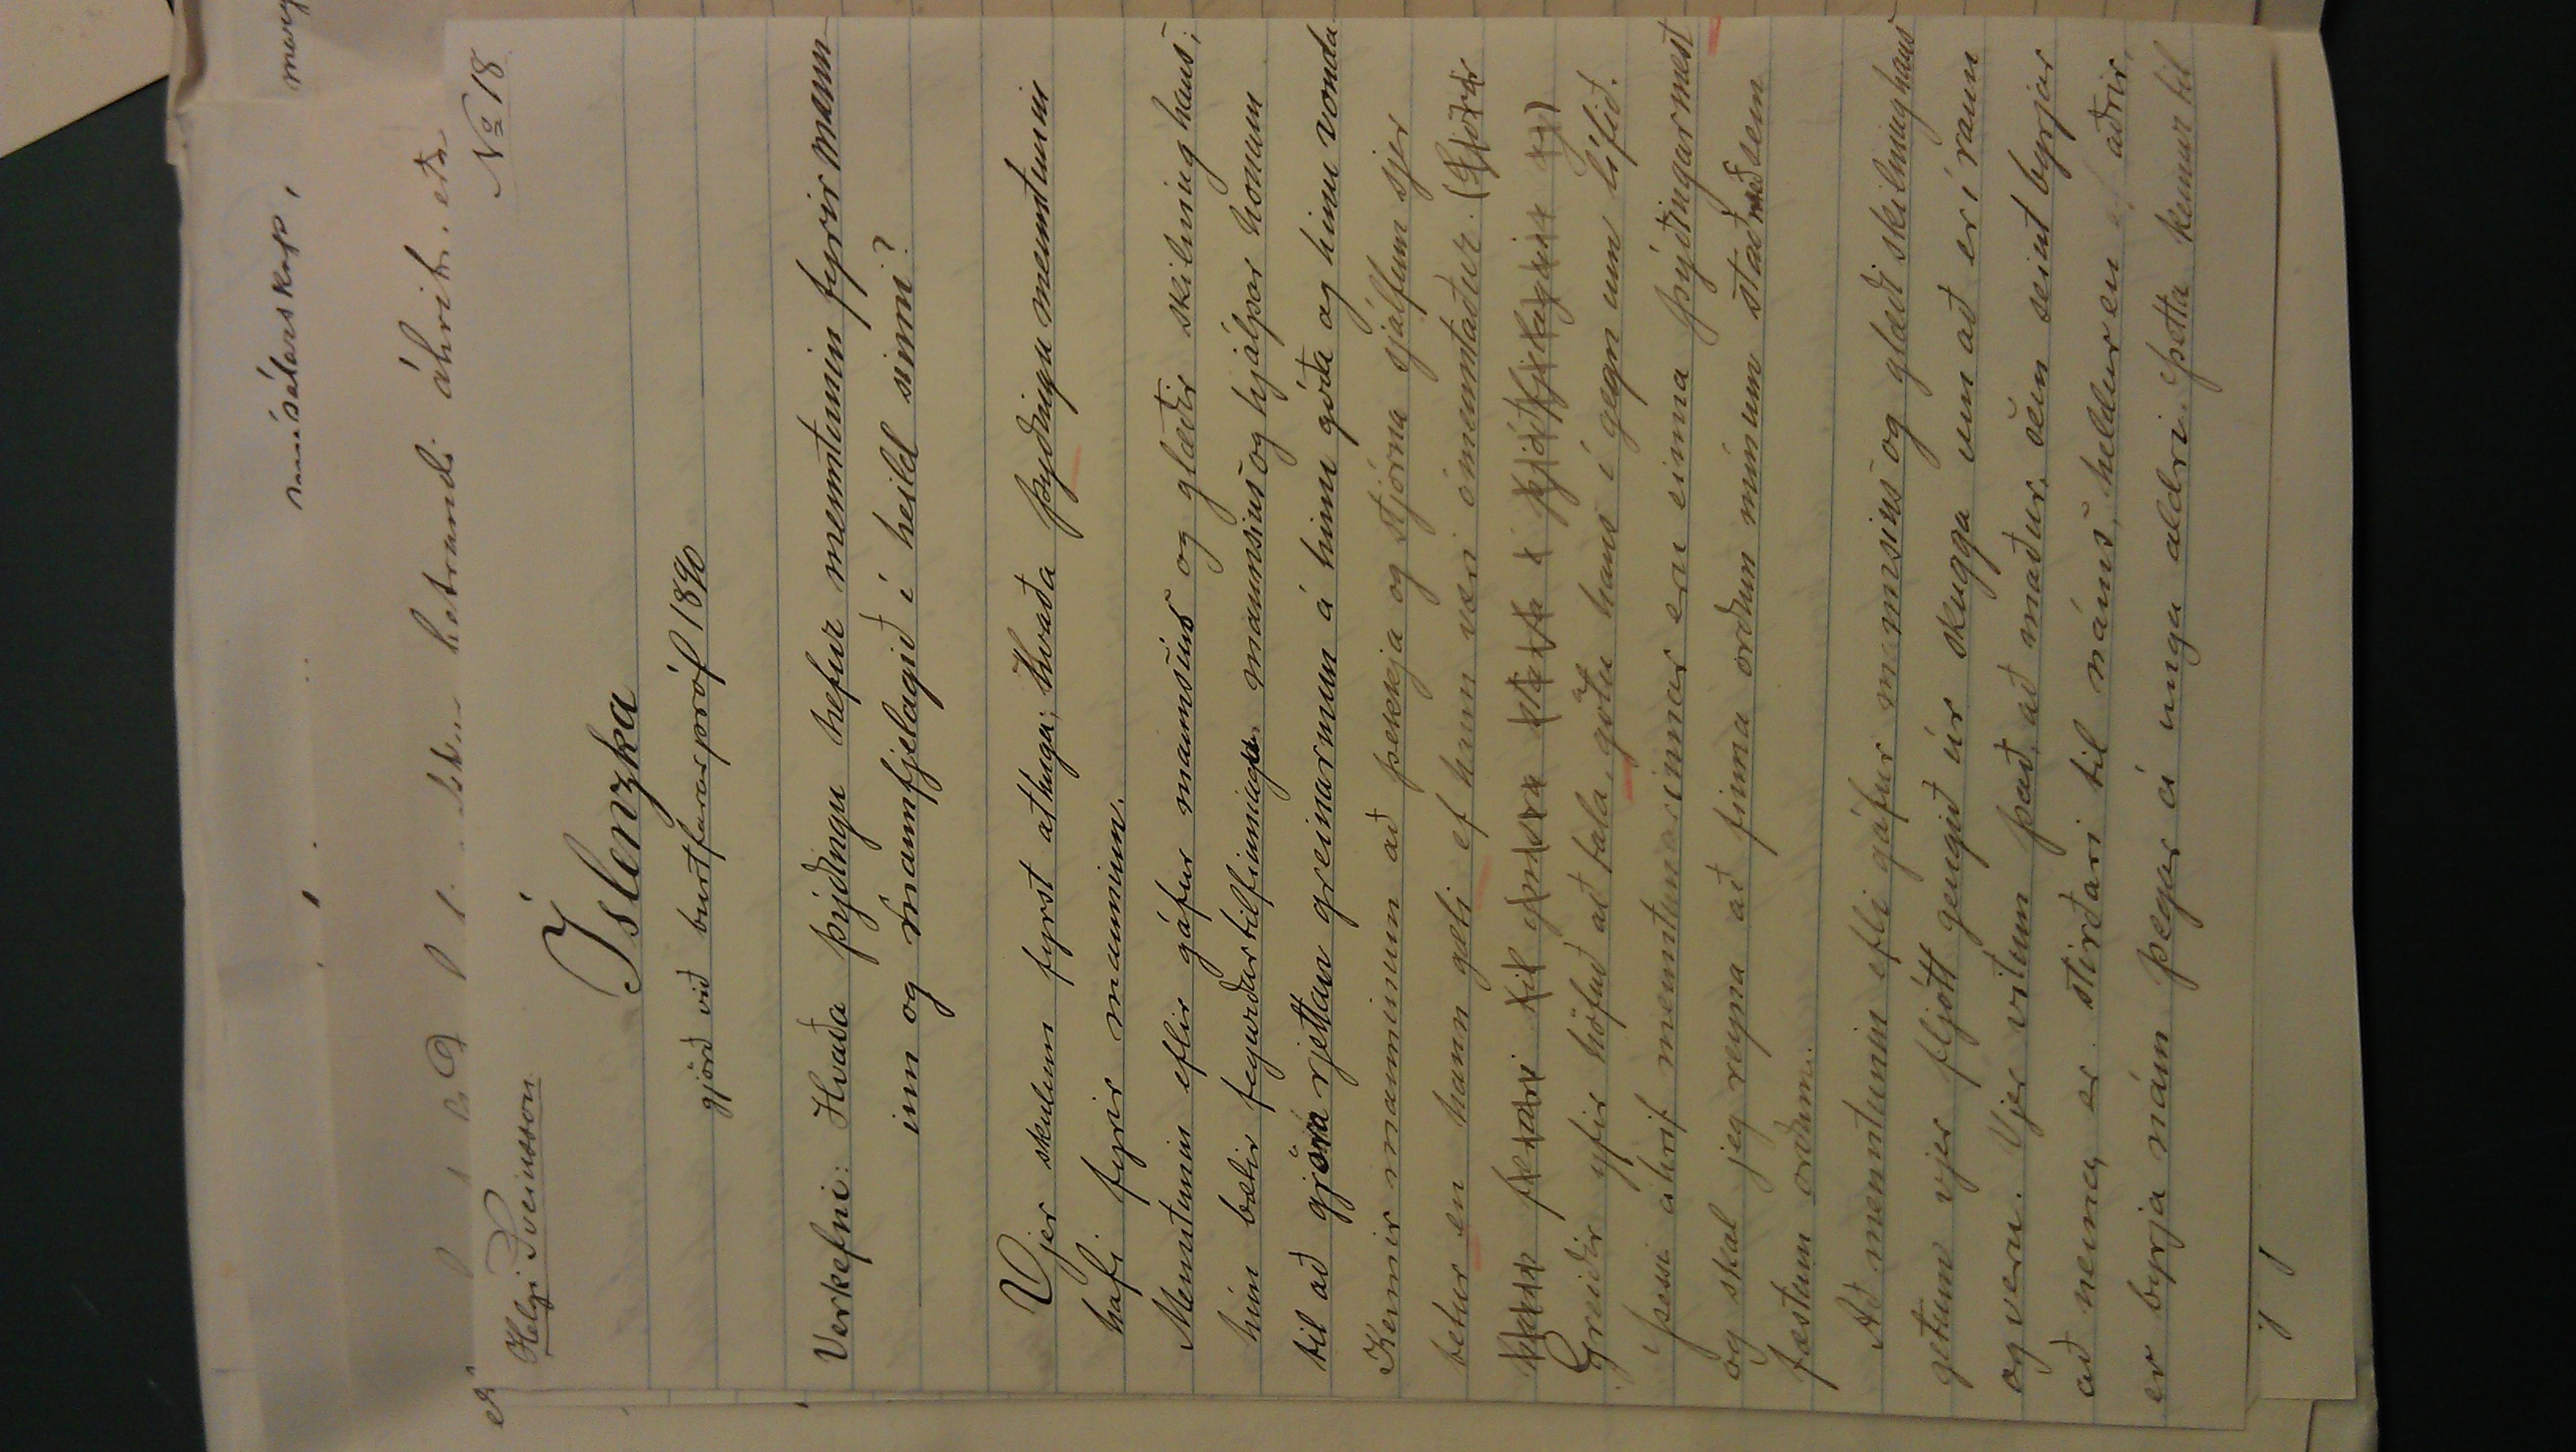 munsálarskap, marg
betrandi áhrif. eða
Helgi Sveinsson.
No 18
Íslenzka
gjörð við burtfararpróf 1890
Verkefni: Hvaða þýðingu hefur menntunin fyrir mann
inn og mannfjelagið í heild sinni?
Vjer skulum fyrst athuga; hvaða þyðingu menntunin
hafi fyrir manninn.
Menntunin eflir gáfur mannsins og glæðir skilning hans;
hún bætir fegurðartilfinninga mannsins og hjálpar honum
til að gjöra rjettan greinarmun á hinu góða og hinu vonda
Kennir manninum að þekkja og stjórna sjálfum sjer
betur en hann gæti ef hann væri ómenntaður. (Gjörir
hann færari til
Greiðir yfir höfuð að tala, götu hans í gegnum lífið.
Þessi áhrif menntunarinnar eru einna þýðingarmest
og skal jeg reyna að finna orðum mínum stað með sem
fæstum orðum.
Að menntunin efli gáfur mannsins og glæði skilning hans
getum vjer fljótt gengið úr skugga um að er í raun
og veru. Vjer vitum það, að maður, sem seint byrjar
að nema, er stirðari til náms, heldur en aðrir,
er byrja nám þegar á unga aldri. Þetta kemur til